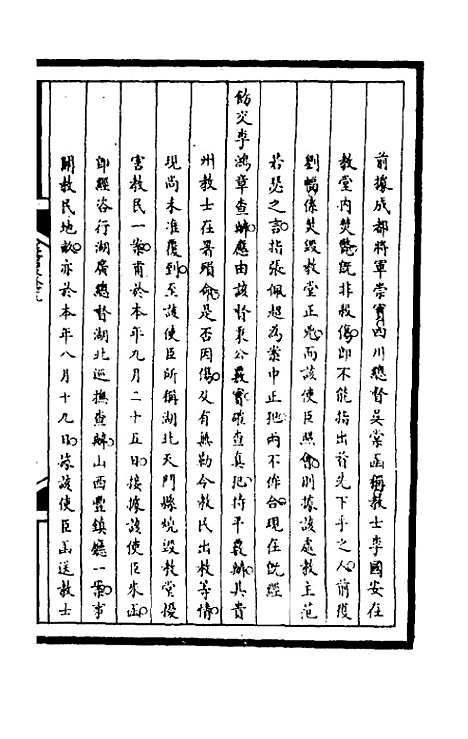 前據成都將軍崇實四川總督吳棠函稱教士李國安在
教堂內焚斃既非殺傷即不能指出首先下手之人前獲
劉幅係焚毀教堂正兇而該使臣照會則據該處教主范
若瑟之言指張佩超為案中正犯兩不作合現在既經
飭交李鴻章查辦應由該督秉公嚴實確查真犯持平嚴辦其貴
州教士在署殞命是否因傷又有無勒令教民出教等情
現尚未准覆到至該使臣所稱湖北天門縣燒毀教堂擾
害教民一案甫於本年九月二十五日接據該使臣來函
即經咨行湖廣總督湖北巡撫查辦山西豐鎮廳一案事
關教民地畝亦於本年八月十九日據該使臣函送教士